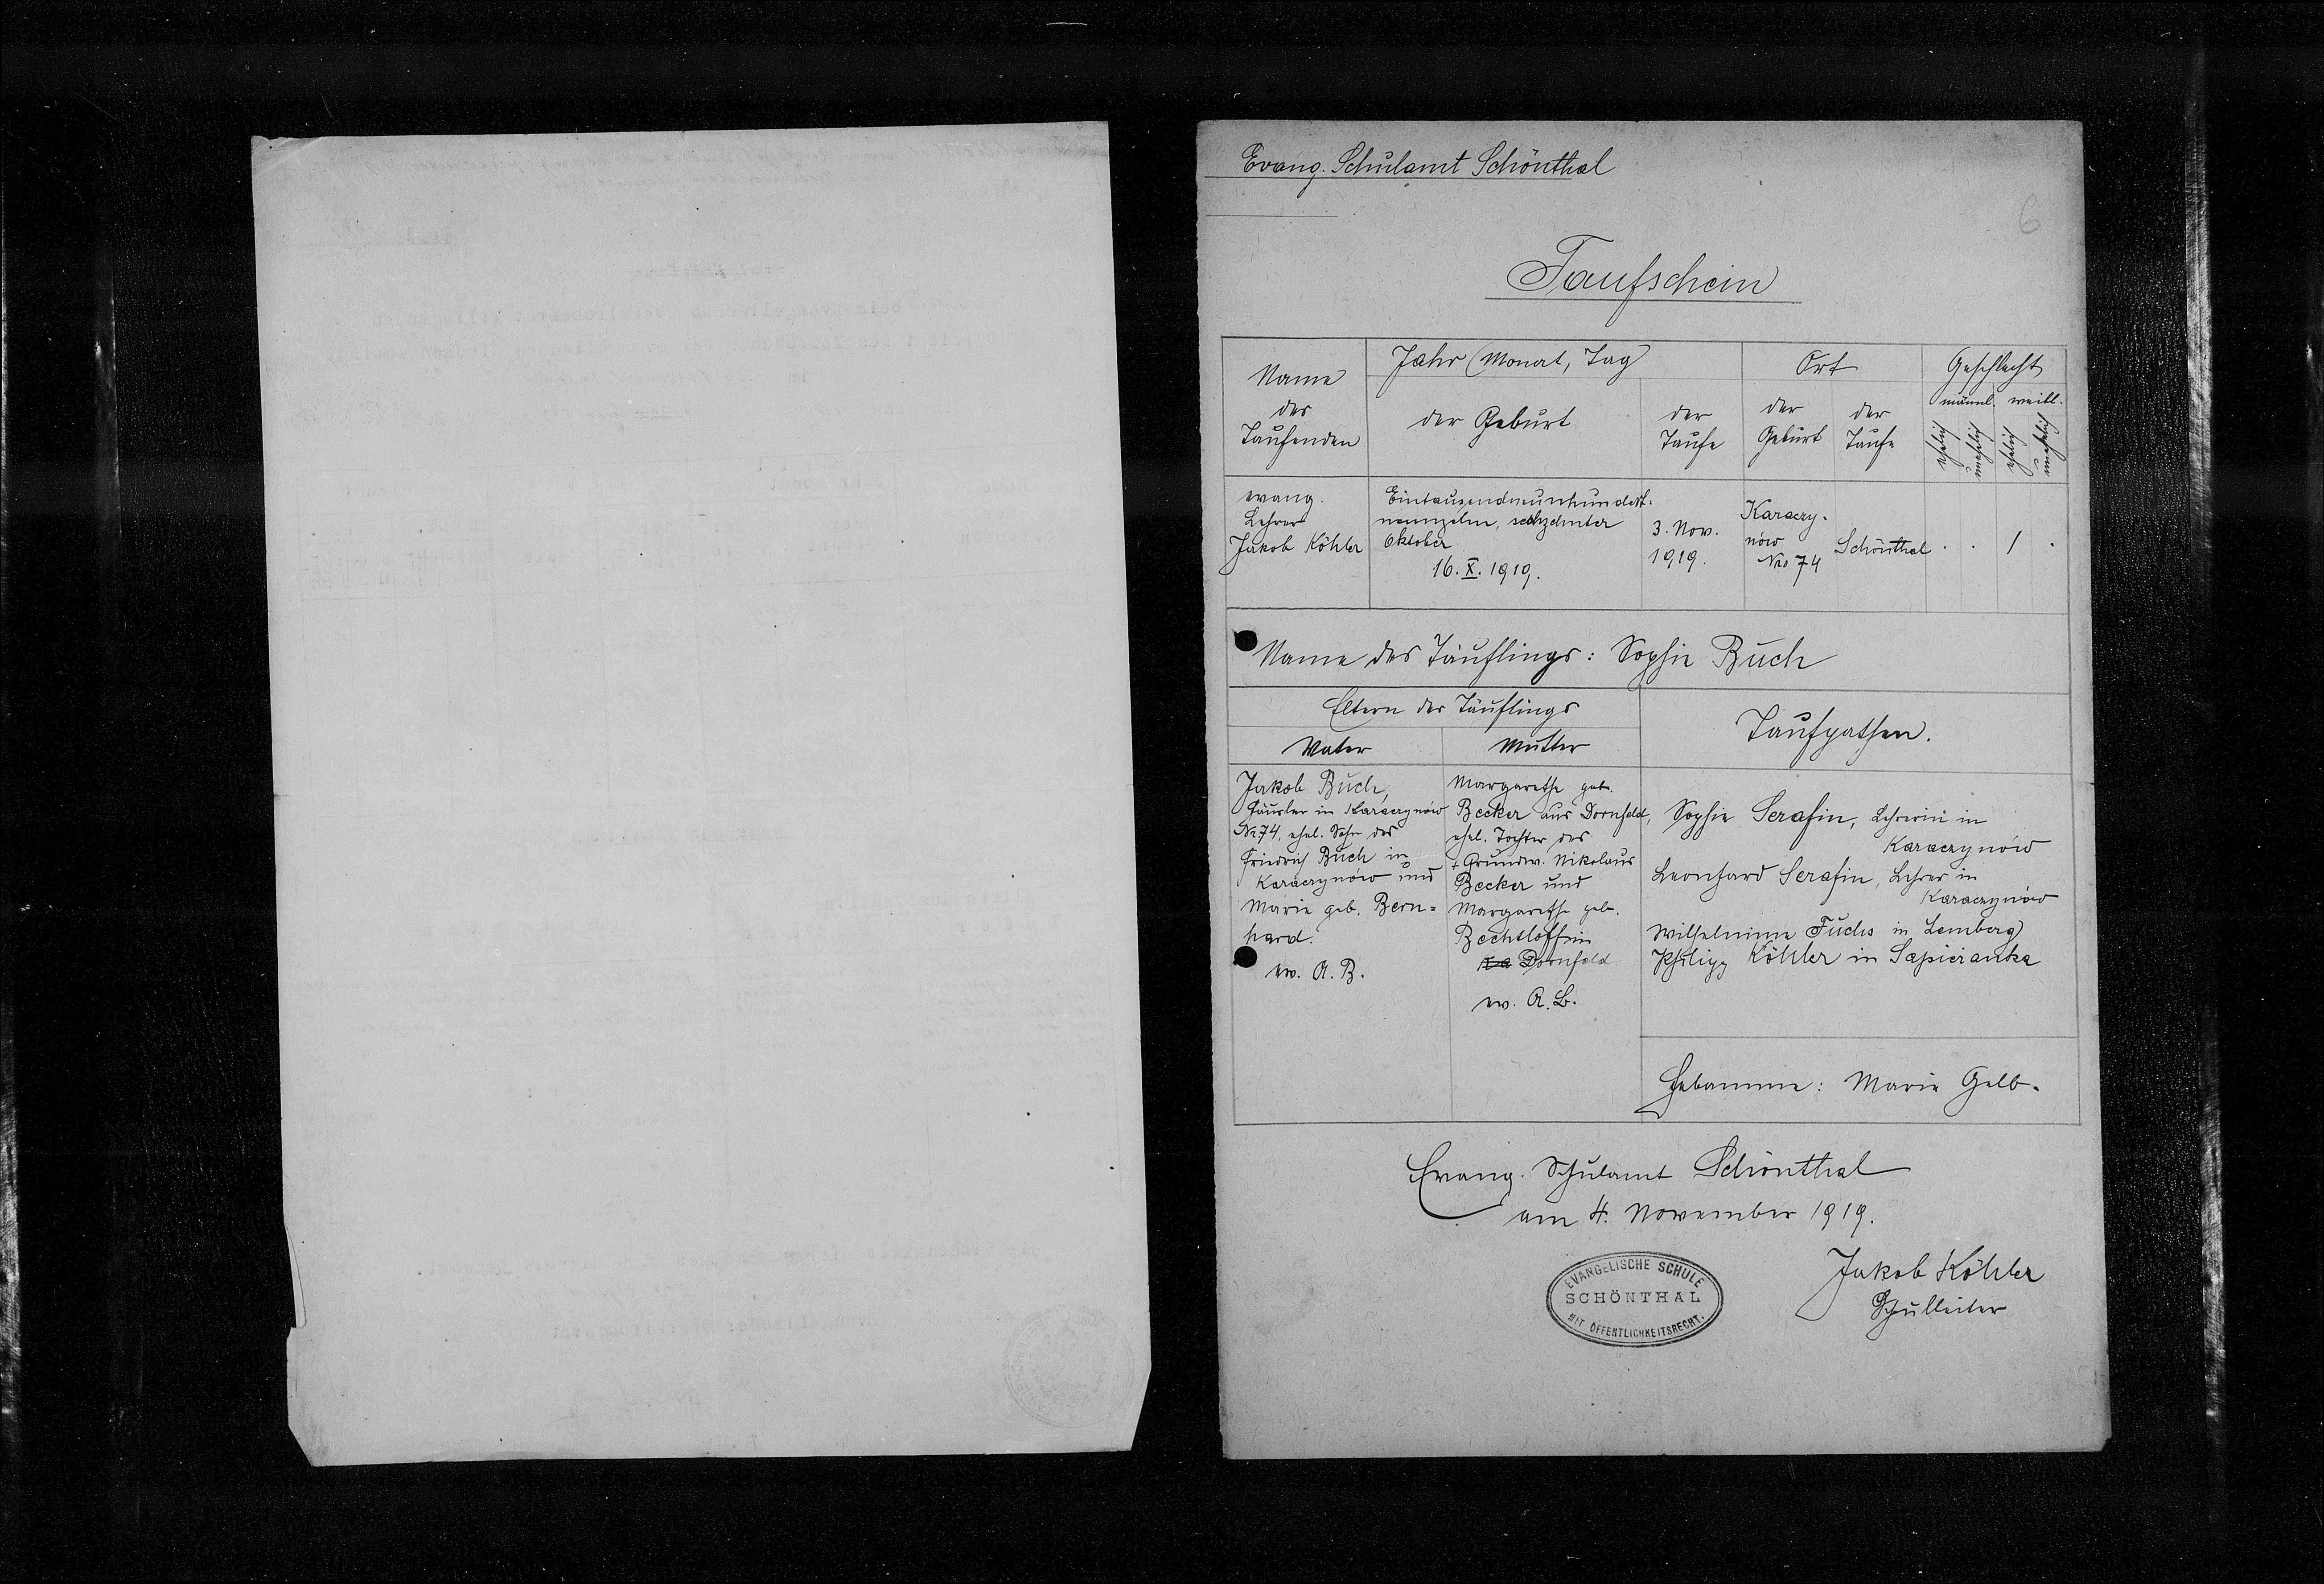 Evang. Schulamt Schönthal
6
Taufschein
Name
des
Taufenden
Jahr, Monat, Tag
der Geburt
der
Taufe
Ort
der
Geburt
der
Taufe
Geschlecht
männl. weibl.
ehelich
unehelich
ehelich
unehelich
evang.
Lehrer
Jakob Köhler
Eintausendneunhundert-
neunzehn, sechzehnter
Oktober
16. X. 1919.
3. Nov.
1919.
Karaczy-
nów
No 74
Schönthal
. . / .
Name des Täuflings: Sophie Buch
Eltern des Täuflings
Vater
Mutter
Taufpathen.
Jakob Buch,
Häusler in Karaczynów
No 74, ehel. Sohn des
Friedrich Buch in
Karaczynów und
Marie geb. Bern=
hard.
ev. A. B.
Margarethe geb.
Becker aus Dornfeld,
ehel. Tochter des
+ Grundw. Nikolaus
Becker und
Margarethe geb.
Bechtloff in
Dornfeld
ev. A. B.
Sophie Serafin, Lehrerin in
Karaczynów
Leonhard Serafin, Lehrer in
Karaczynów
Wilhelmine Fuchs in Lemberg
Philipp Köhler in Sapieranka
Hebamme: Marie Gelb.
Evang. Schulamt Schönthal
am 4. November 1919.
EVANGELISCHE SCHULE
SCHÖNTHAL
MIT ÖFFENTLICHKEITSRECHT.
Jakob Köhler
Schulleiter